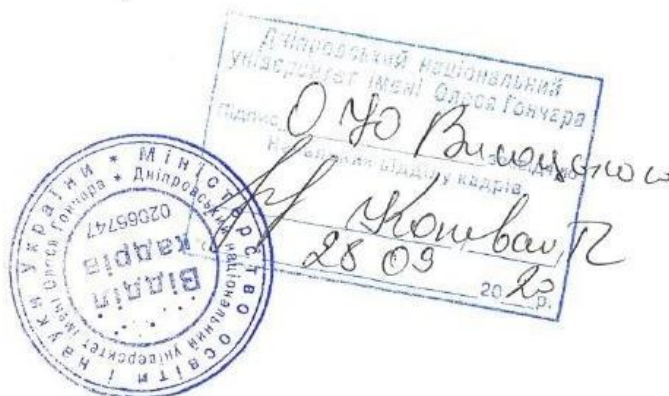 Дніпровський національний
університет імені Олеся Гончара
Підпис О Ю
Начальник відділу кадрів
28 09 2020 р.
Міністерство освіти і науки України *
* Дніпровський національний університет імені Олеся Гончара
02066747
Відділ
кадрів